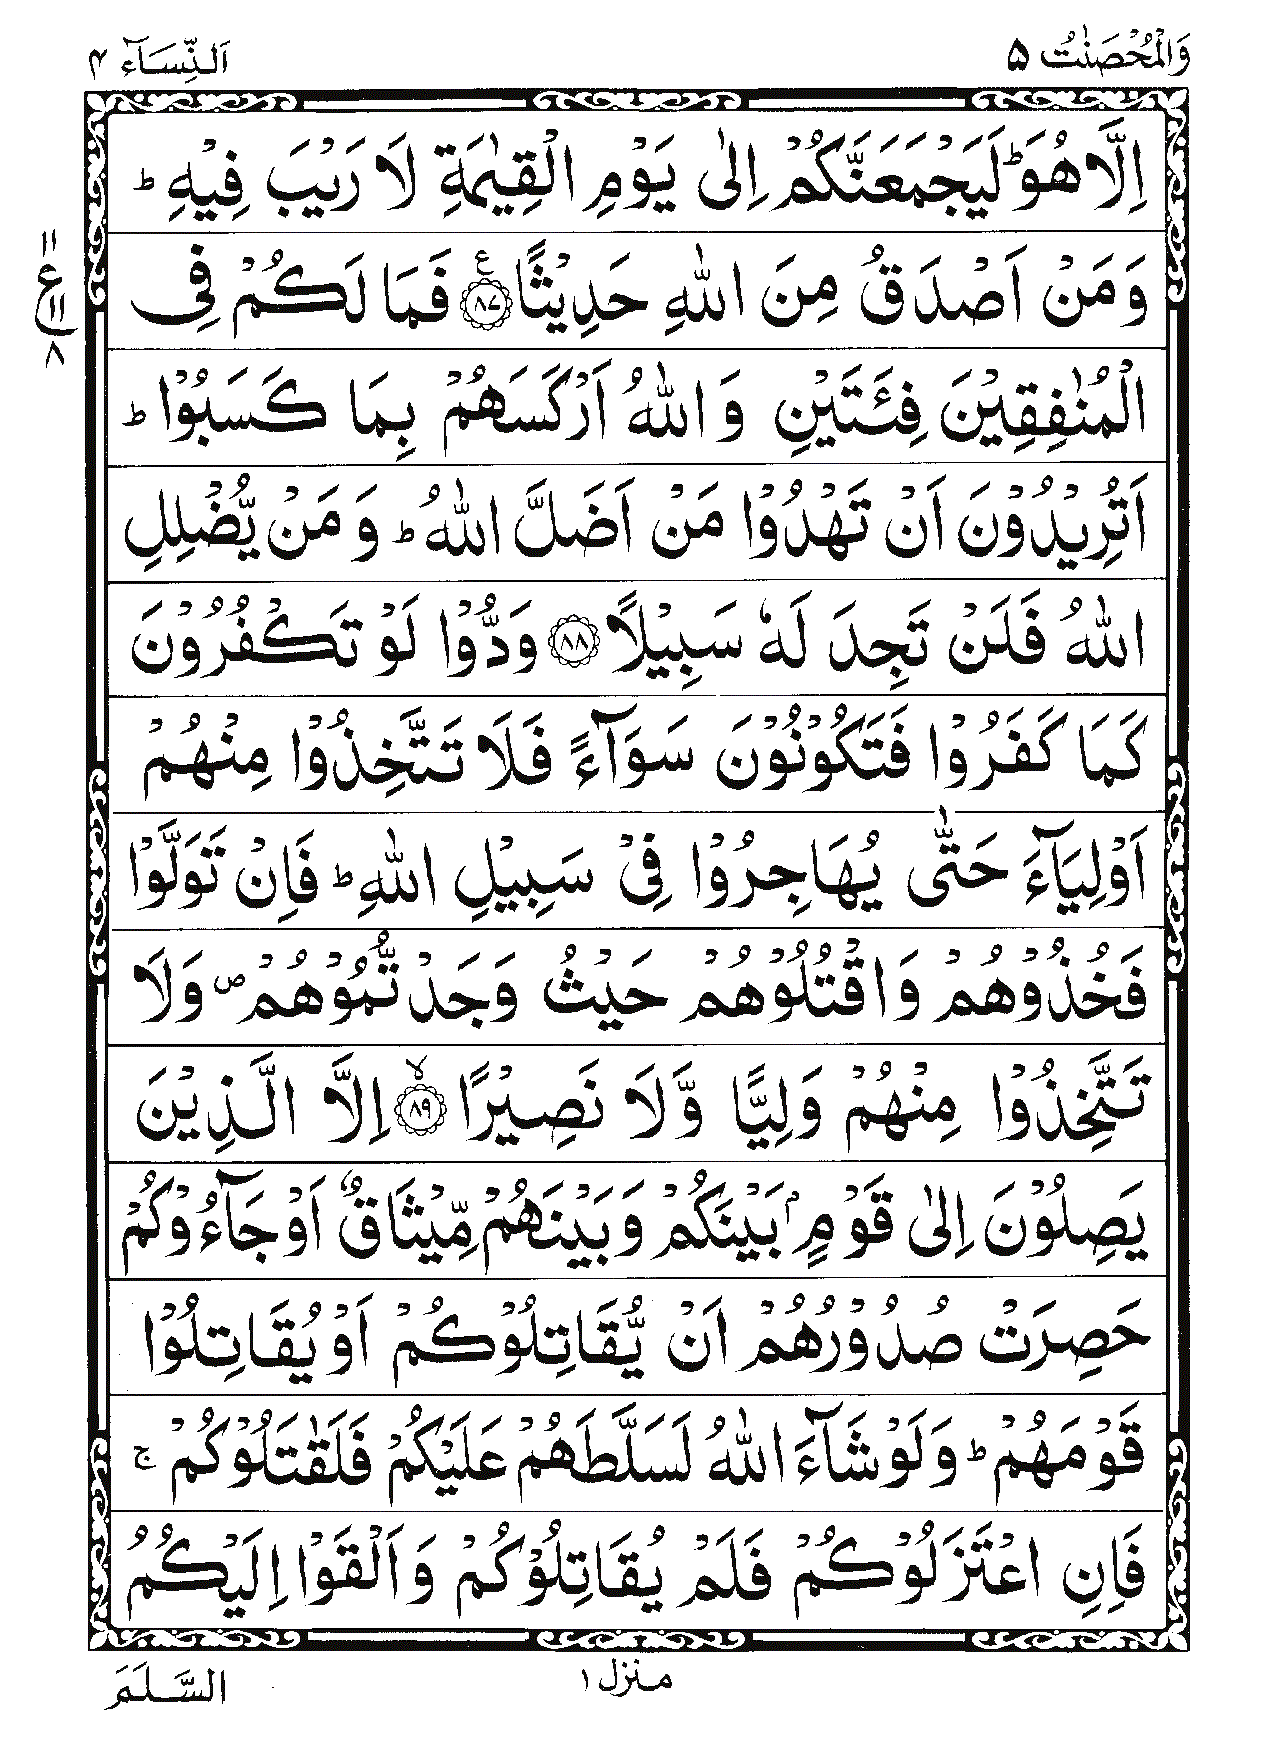 وَالْمُحْصَنٰتُ ۵
اَلنِّسَآء ۴
اِلَّا هُوَ ؕ لَيَجْمَعَنَّكُمْ اِلٰى يَوْمِ الْقِيٰمَةِ لَا رَيْبَ فِيْهِ ؕ
وَمَنْ اَصْدَقُ مِنَ اللّٰهِ حَدِيْثًا ﴿۸۷﴾ ع فَمَا لَكُمْ فِى
الْمُنٰفِقِيْنَ فِئَتَيْنِ وَاللّٰهُ اَرْكَسَهُمْ بِمَا كَسَبُوْا ؕ
اَتُرِيْدُوْنَ اَنْ تَهْدُوْا مَنْ اَضَلَّ اللّٰهُ ؕ وَمَنْ يُّضْلِلِ
اللّٰهُ فَلَنْ تَجِدَ لَهٗ سَبِيْلًا ﴿۸۸﴾ وَدُّوْا لَوْ تَكْفُرُوْنَ
كَمَا كَفَرُوْا فَتَكُوْنُوْنَ سَوَآءً فَلَا تَتَّخِذُوْا مِنْهُمْ
اَوْلِيَآءَ حَتّٰى يُهَاجِرُوْا فِىْ سَبِيْلِ اللّٰهِ ؕ فَاِنْ تَوَلَّوْا
فَخُذُوْهُمْ وَاقْتُلُوْهُمْ حَيْثُ وَجَدْتُّمُوْهُمْ ص وَلَا
تَتَّخِذُوْا مِنْهُمْ وَلِيًّا وَّلَا نَصِيْرًا ﴿۸۹﴾ ۙ اِلَّا الَّذِيْنَ
يَصِلُوْنَ اِلٰى قَوْمٍۭ بَيْنَكُمْ وَبَيْنَهُمْ مِّيْثَاقٌ اَوْ جَآءُوْكُمْ
حَصِرَتْ صُدُوْرُهُمْ اَنْ يُّقَاتِلُوْكُمْ اَوْ يُقَاتِلُوْا
قَوْمَهُمْ ؕ وَلَوْ شَآءَ اللّٰهُ لَسَلَّطَهُمْ عَلَيْكُمْ فَلَقٰتَلُوْكُمْ ۚ
فَاِنِ اعْتَزَلُوْكُمْ فَلَمْ يُقَاتِلُوْكُمْ وَاَلْقَوْا اِلَيْكُمُ
۱۱
ع
۱۱
۸
منزل ۱
السَّلَمَ